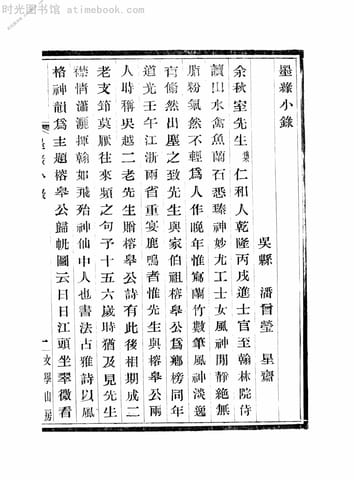 时光图书馆 atimebook.com
墨緣小錄
吳縣 潘曾瑩 星齋
余秋室先生集仁和人乾隆丙戌進士官至翰林院侍
讀山水禽魚蘭石悉臻神妙尤工士女風神閒靜絕無
脂粉氣然不輕爲人作晚年惟寫蘭竹數筆風神淡逸
有翛然出塵之致先生與家伯祖榕皋公爲鄉榜同年
道光壬午江浙兩省重宴鹿鳴者惟先生與榕皋公兩
人時稱吳越二老先生贈榕皋公詩有此後相期成二
老支節莫厭往來頻之句予十五六歲時猶及見先生
襟情瀟灑揮翰如飛殆神仙中人也書法占雅詩以風
格神韻爲主題榕皋公歸帆圖云日日江頭坐翠微看
墨緣小錄
一
文學山房